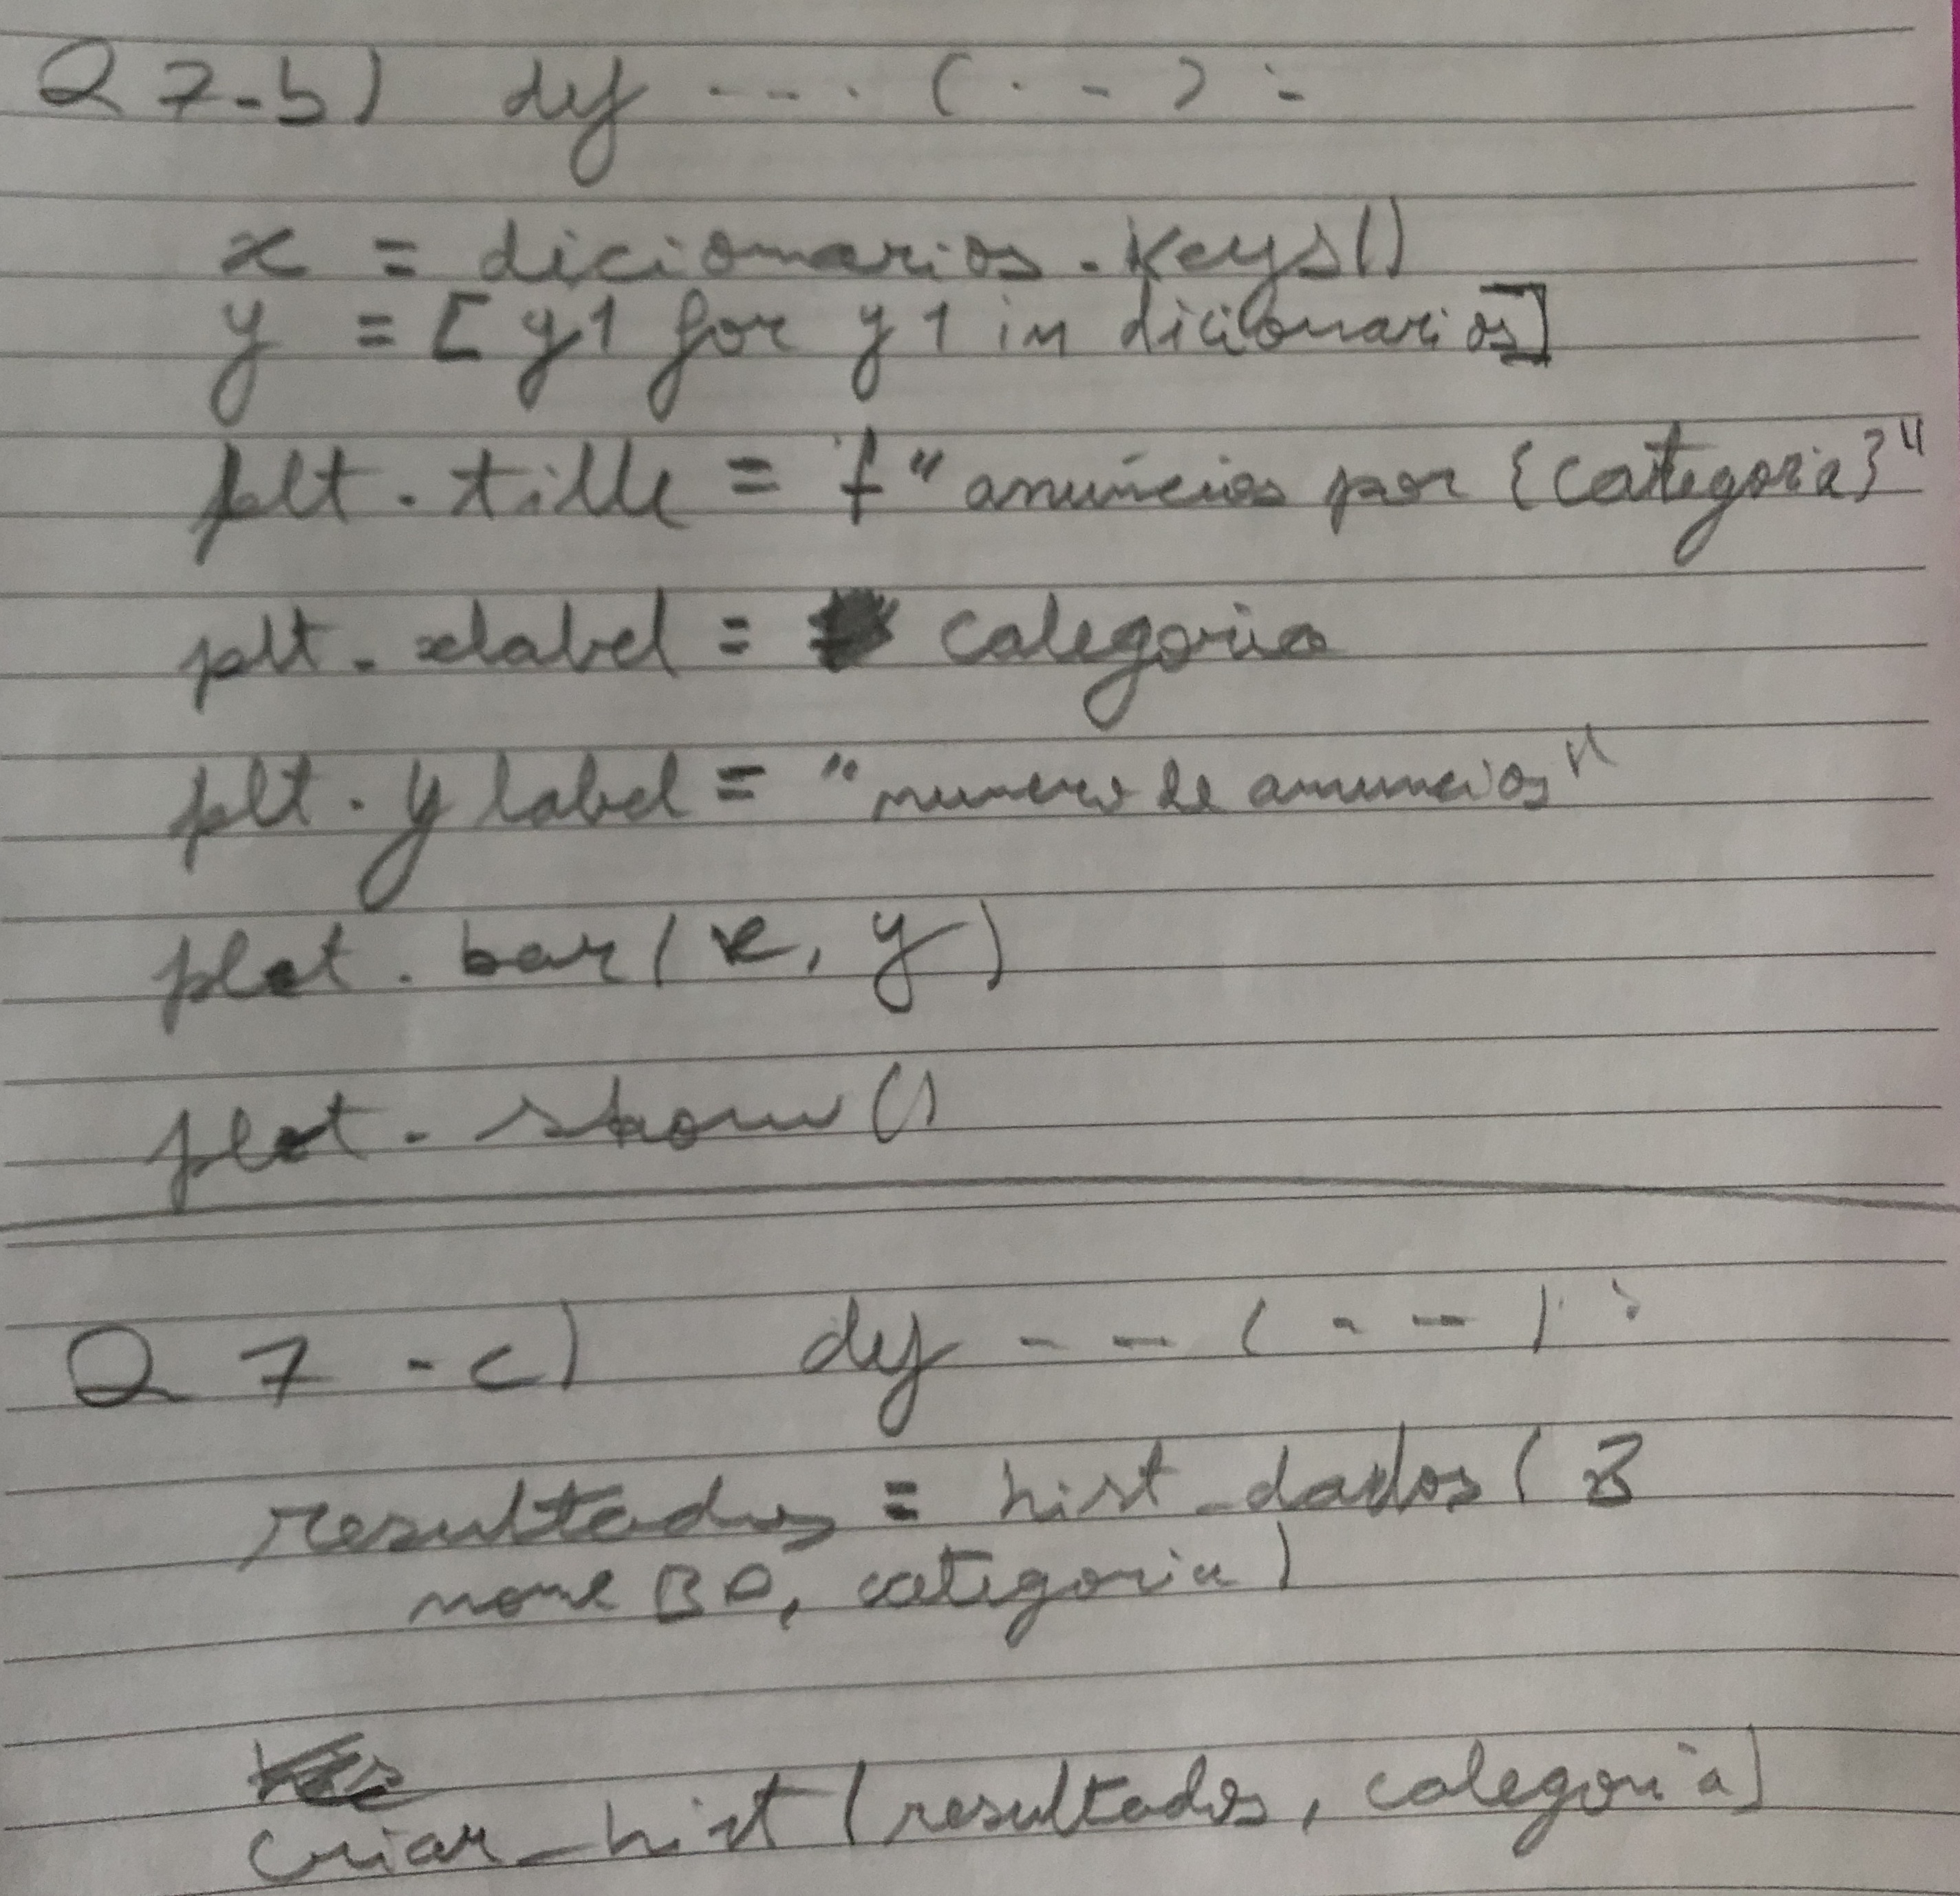 Q7-b) def ---- (---):
x = dicionarios.keys()
y = [y1 for y1 in dicionarios]
plt.title = f"anúncios por {categoria}"
plt.xlabel = categoria
plt.ylabel = "numero de anuncios"
plt.bar(x, y)
plt.show()
Q7-c) def --- (---):
resultados = hist_dados(
nome BD, categoria)
criar_hist(resultados, categoria)